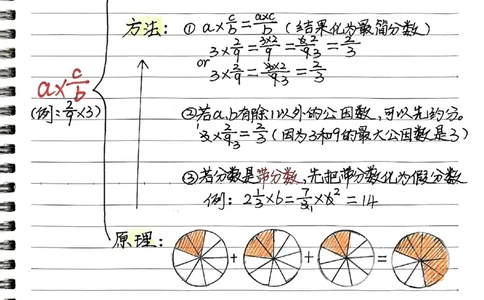 方法: ① a×c/b=a×c/b (结果化为最简分数)
3×2/9=3×2/9=3×2/9 3=2/3
or
3×2/9=3×2/9 3=2/3
a×c/b
(例:2/9×3)
②若a,b有除1以外的公因数,可以先约分。
1 3×2/9 3=2/3 (因为3和9的最大公因数是3)
③若分数是带分数,先把带分数化为假分数
例: 2 1/3×6=7/3 1×6 2=14
原理: + + =